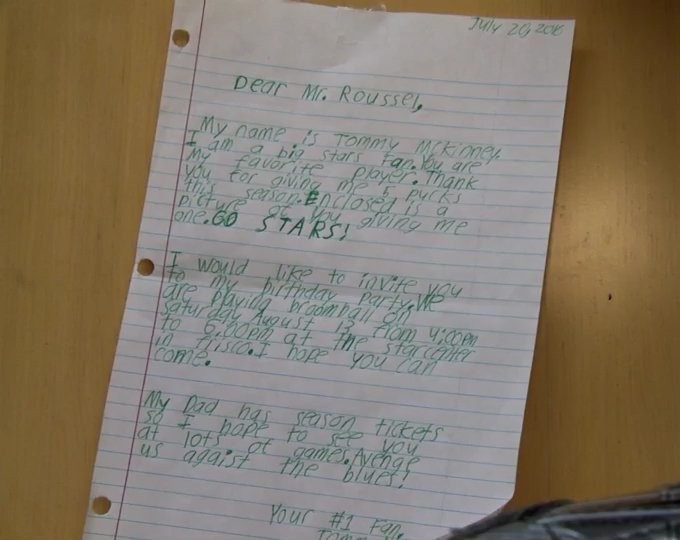 July 20, 2016
Dear Mr. Roussel,
My name is Tommy McKinney.
I am a big stars Fan. You are
My favorite player. Thank
you for giving me 6 pucks
this season. Enclosed is a
picture of you giving me
one. GO STARS!
I would like to invite you
to my birthday party. We
are playing broomball on
Saturday August 13 from 4:00pm
to 6:00pm at the starcenter
in frisco. I hope you can
come.
My Dad has season tickets
so I hope to see you
at lots of games. Avenge
us agaist the blues!
Your #1 Fan,
Tommy